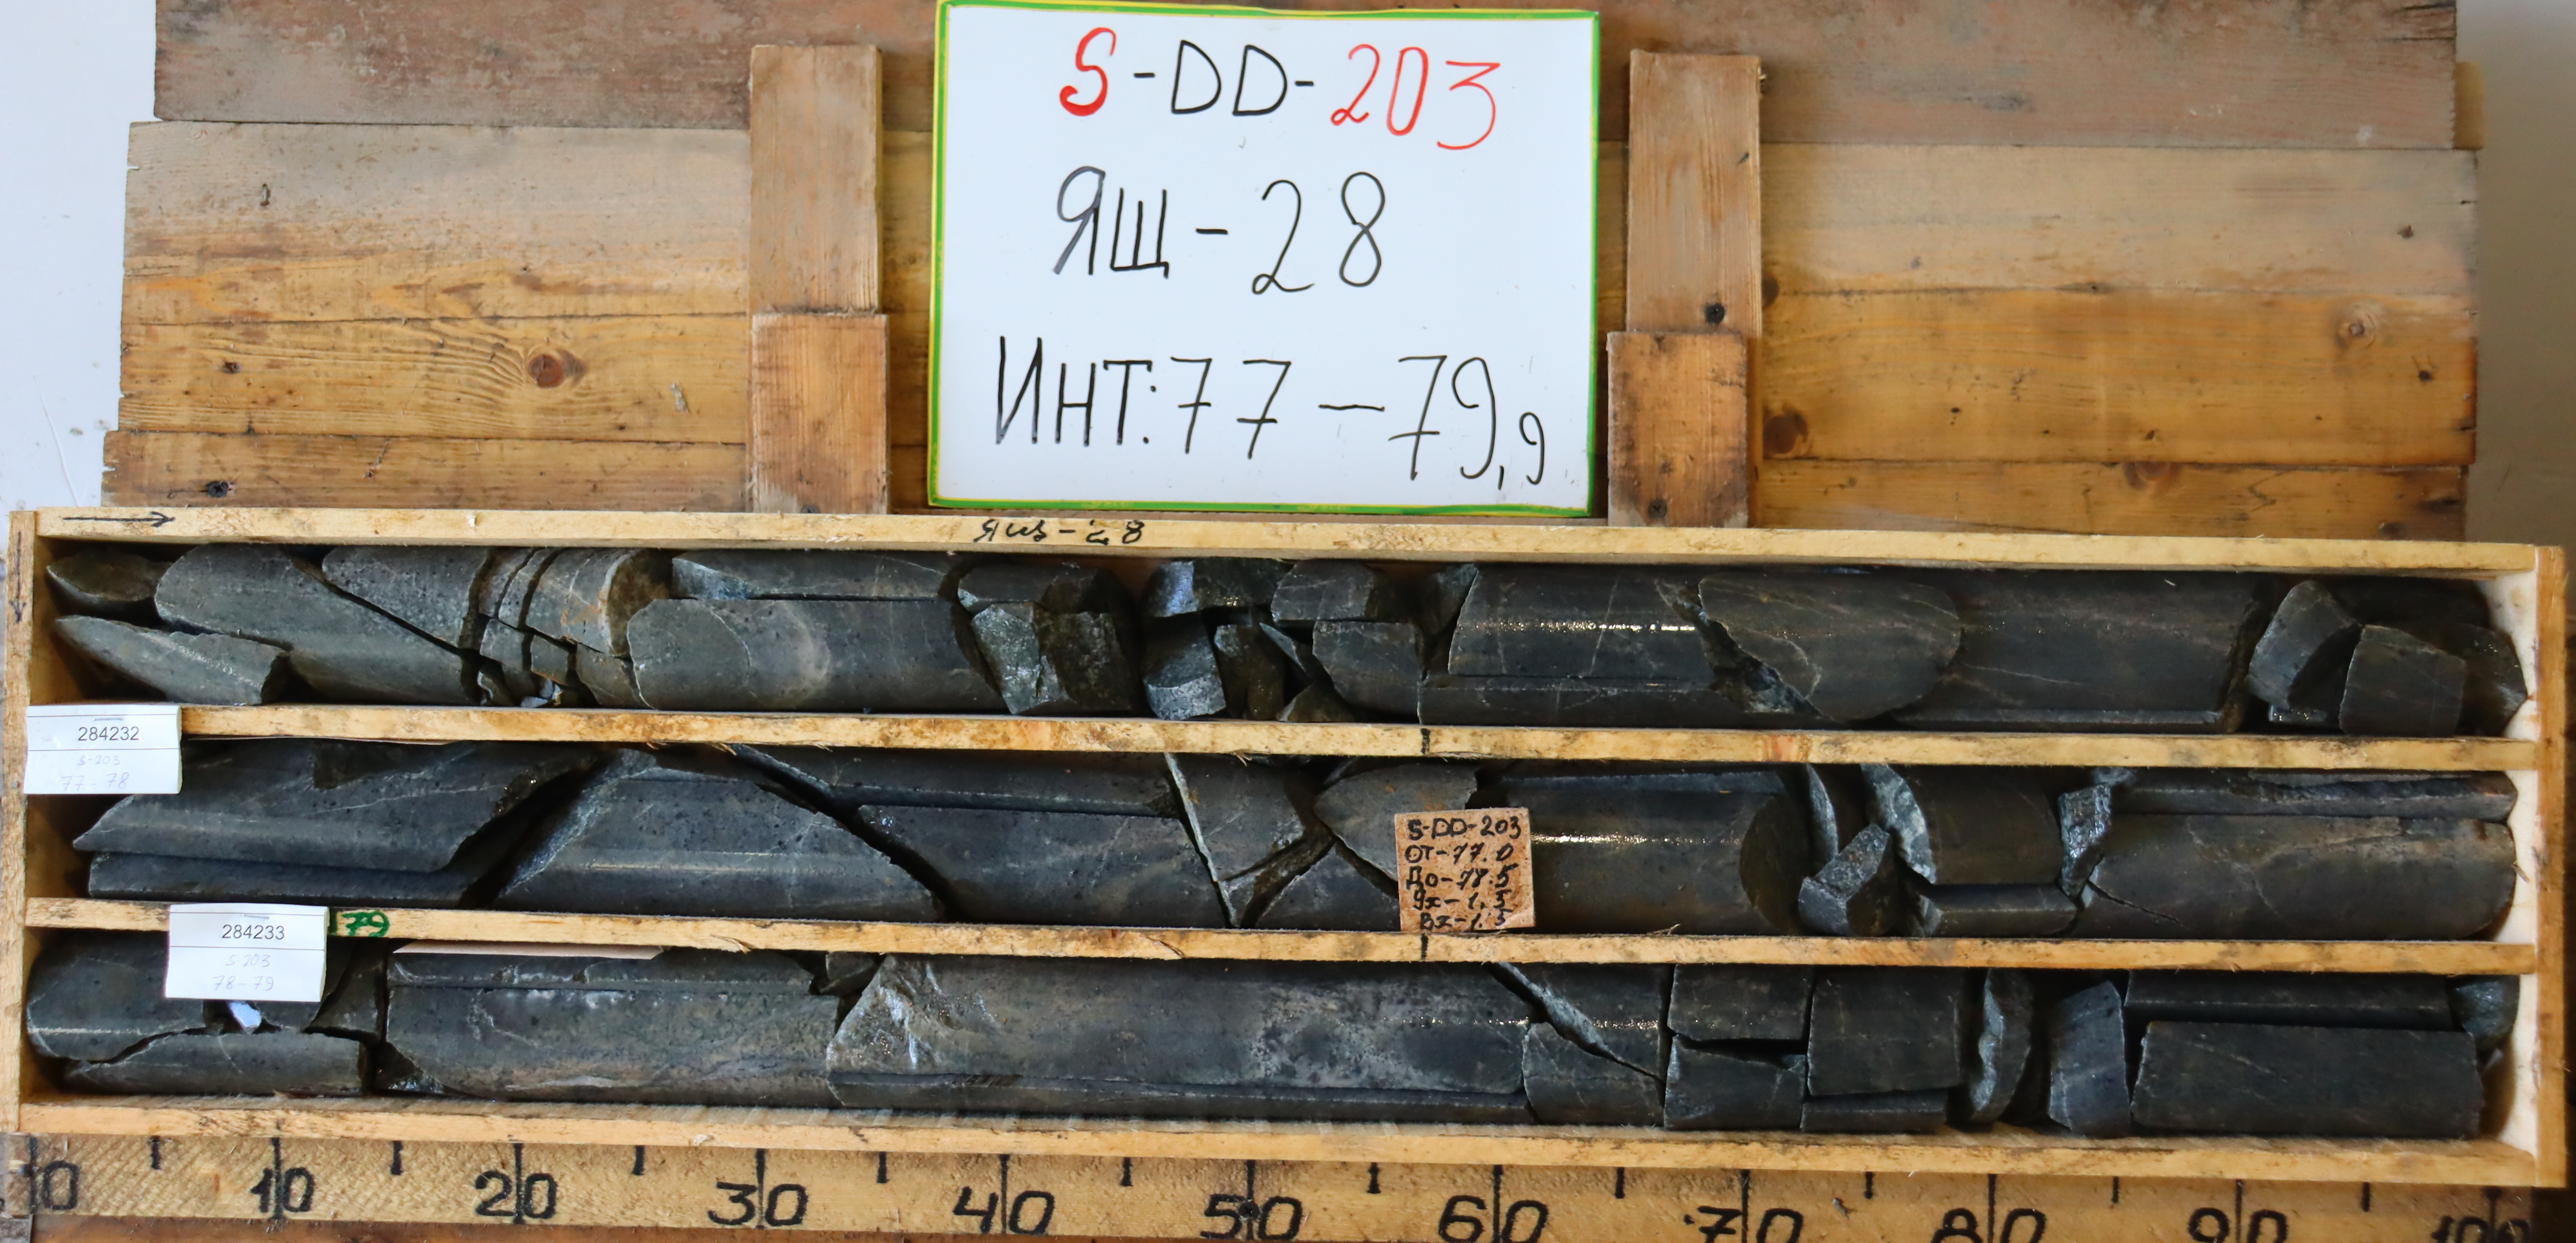 S-DD-203
ЯЩ-28
ИНТ: 77-79,9
Ящ-28
284232
S-203
77-78
S-DD-203
От-77.0
До-78.5
Ух-1.5
Вк-1.5
284233
S-203
78-79
79
0 10 20 30 40 50 60 70 80 90 100